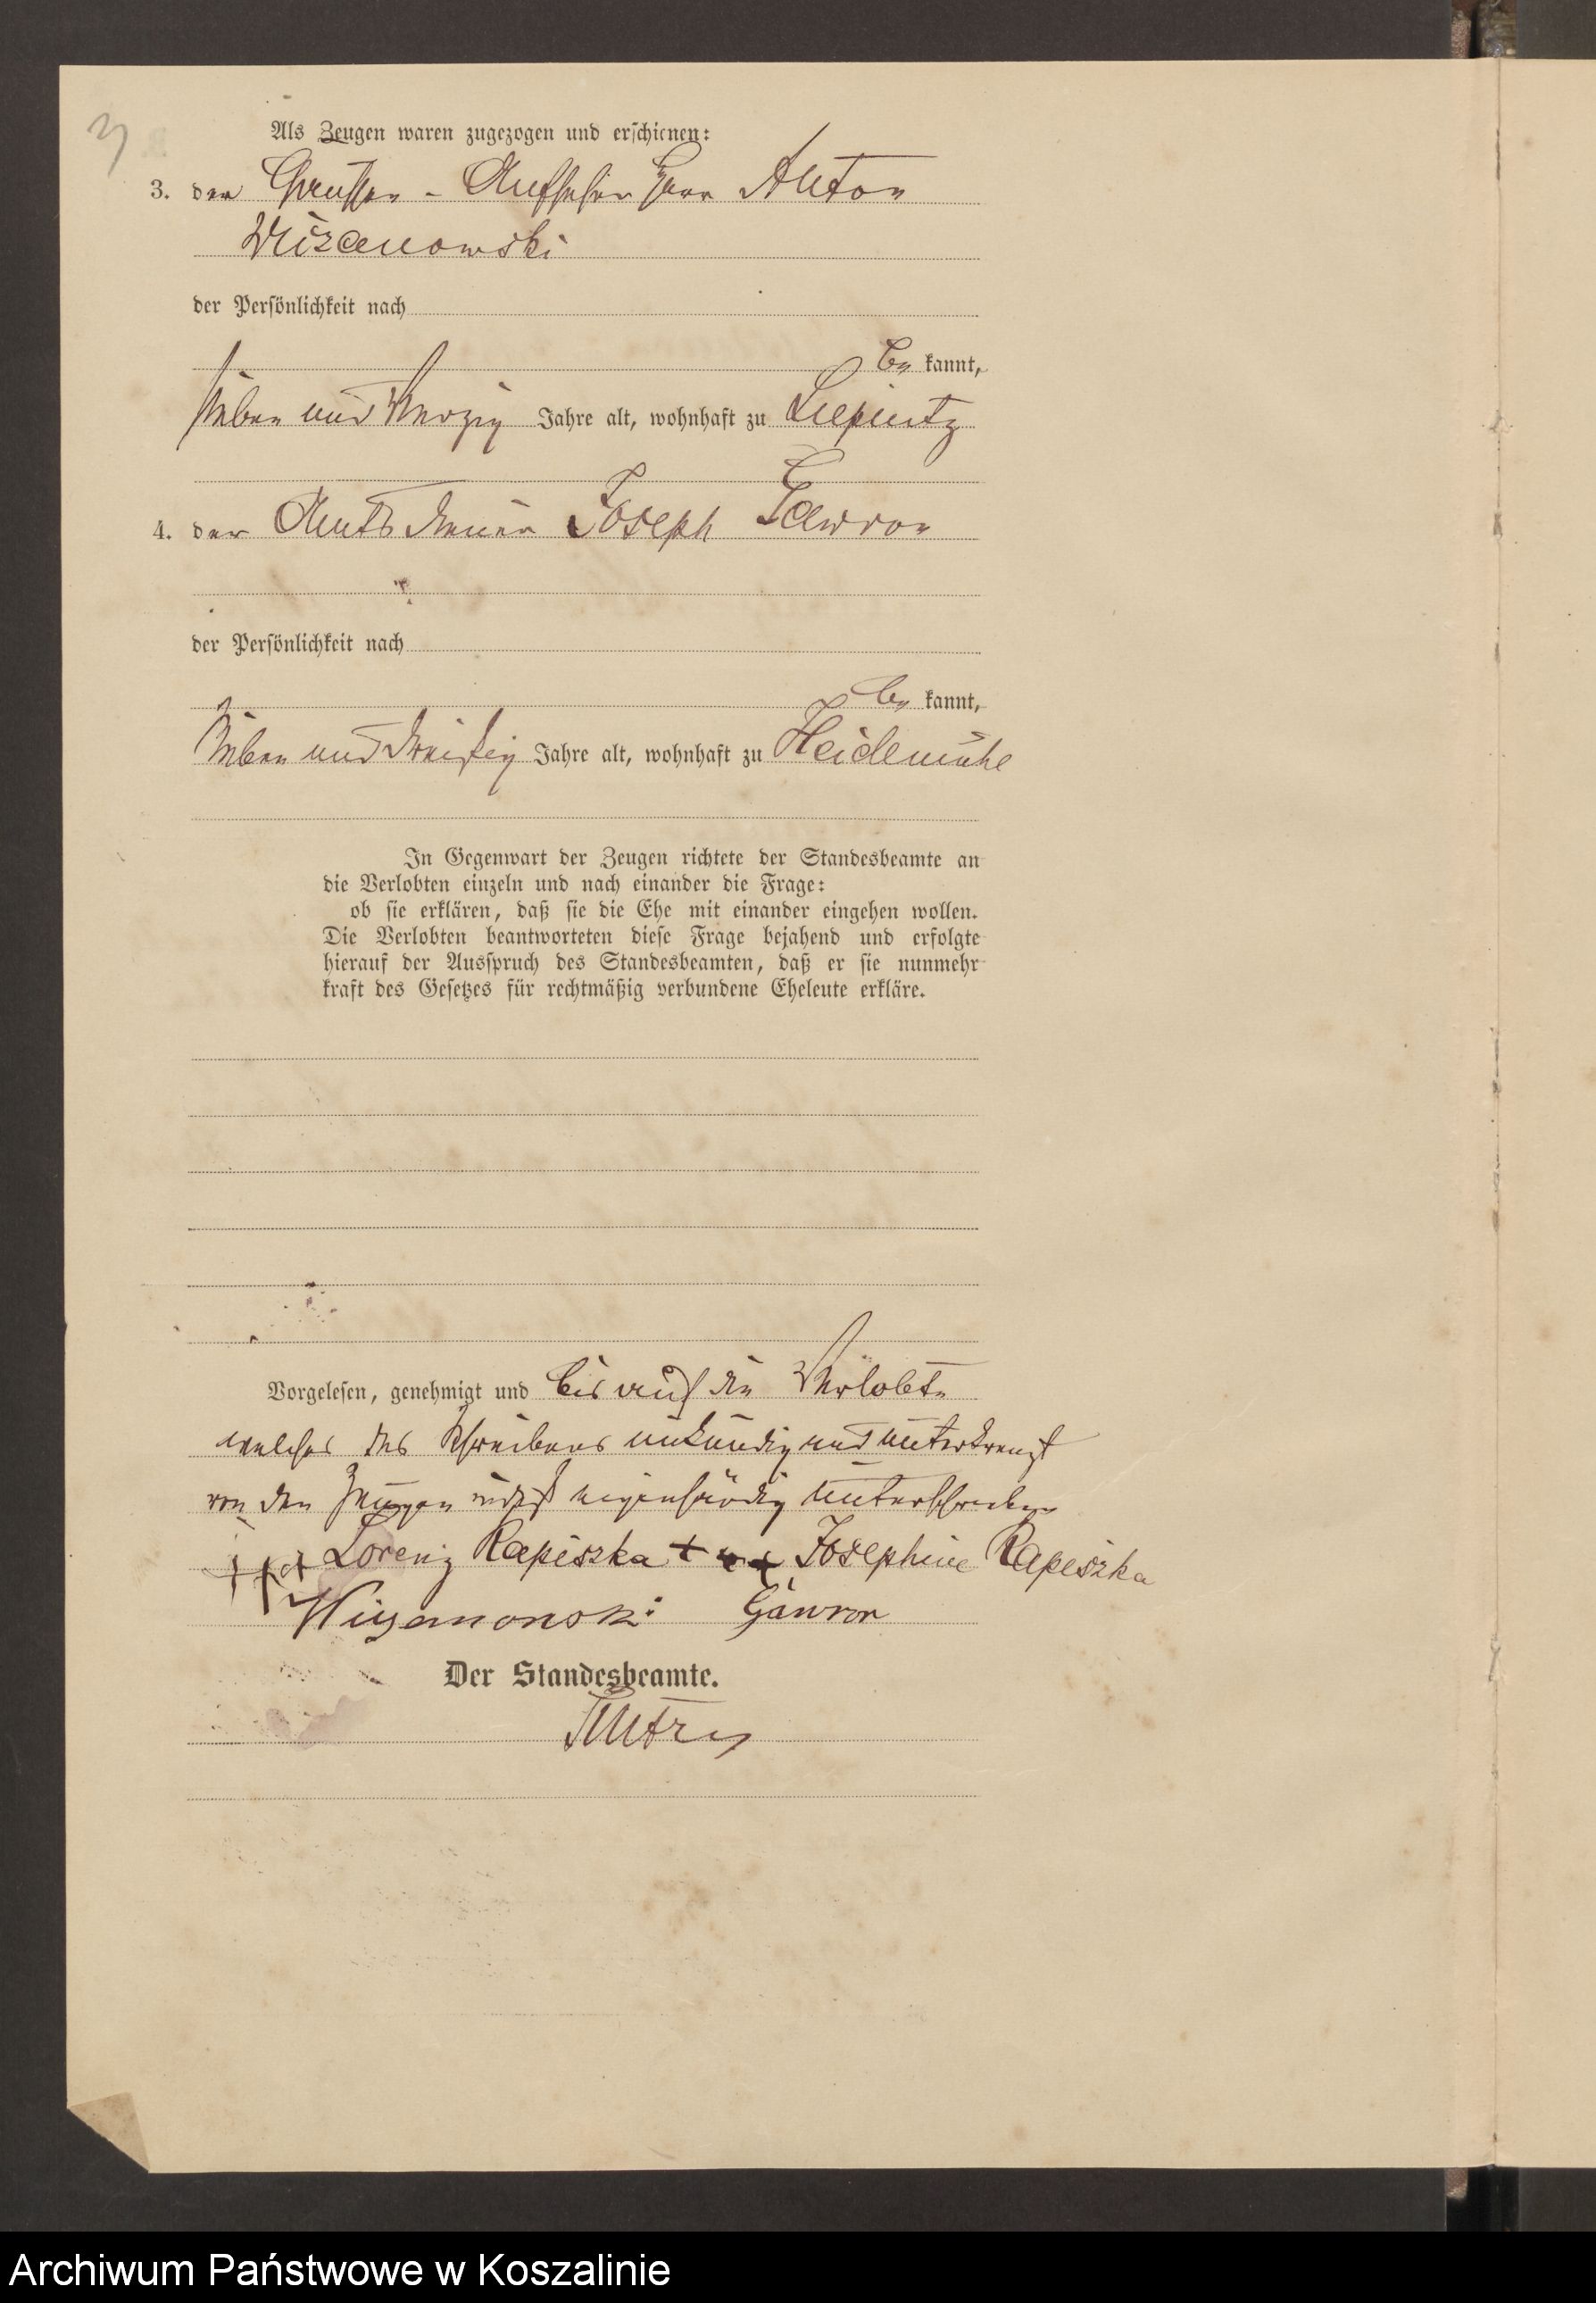 3
Als Zeugen waren zugezogen und erschienen:
3. der Chaussee-Aufseher Herr Anton
Wizanowski
der Persönlichkeit nach
be kannt,
sieben und vierzig Jahre alt, wohnhaft zu Liepnitz
4. der Amtsdiener Joseph Gawron
der Persönlichkeit nach
be kannt,
sieben und dreißig Jahre alt, wohnhaft zu Heidemühl
In Gegenwart der Zeugen richtete der Standesbeamte an
die Verlobten einzeln und nach einander die Frage:
ob sie erklären, daß sie die Ehe mit einander eingehen wollen.
Die Verlobten beantworteten diese Frage bejahend und erfolgte
hierauf der Ausspruch des Standesbeamten, daß er sie nunmehr
kraft des Gesetzes für rechtmäßig verbundene Eheleute erkläre.
Vorgelesen, genehmigt und bis auf die Verlobten
welche des Schreibens unkundig und unterkreuzt
von den Zeugen eigenhändig unterschrieben
+++ Lorenz Rapiszka +++ Josephine Rapiszka
Wizanowski Gawron
Der Standesbeamte.
Archiwum Państwowe w Koszalinie